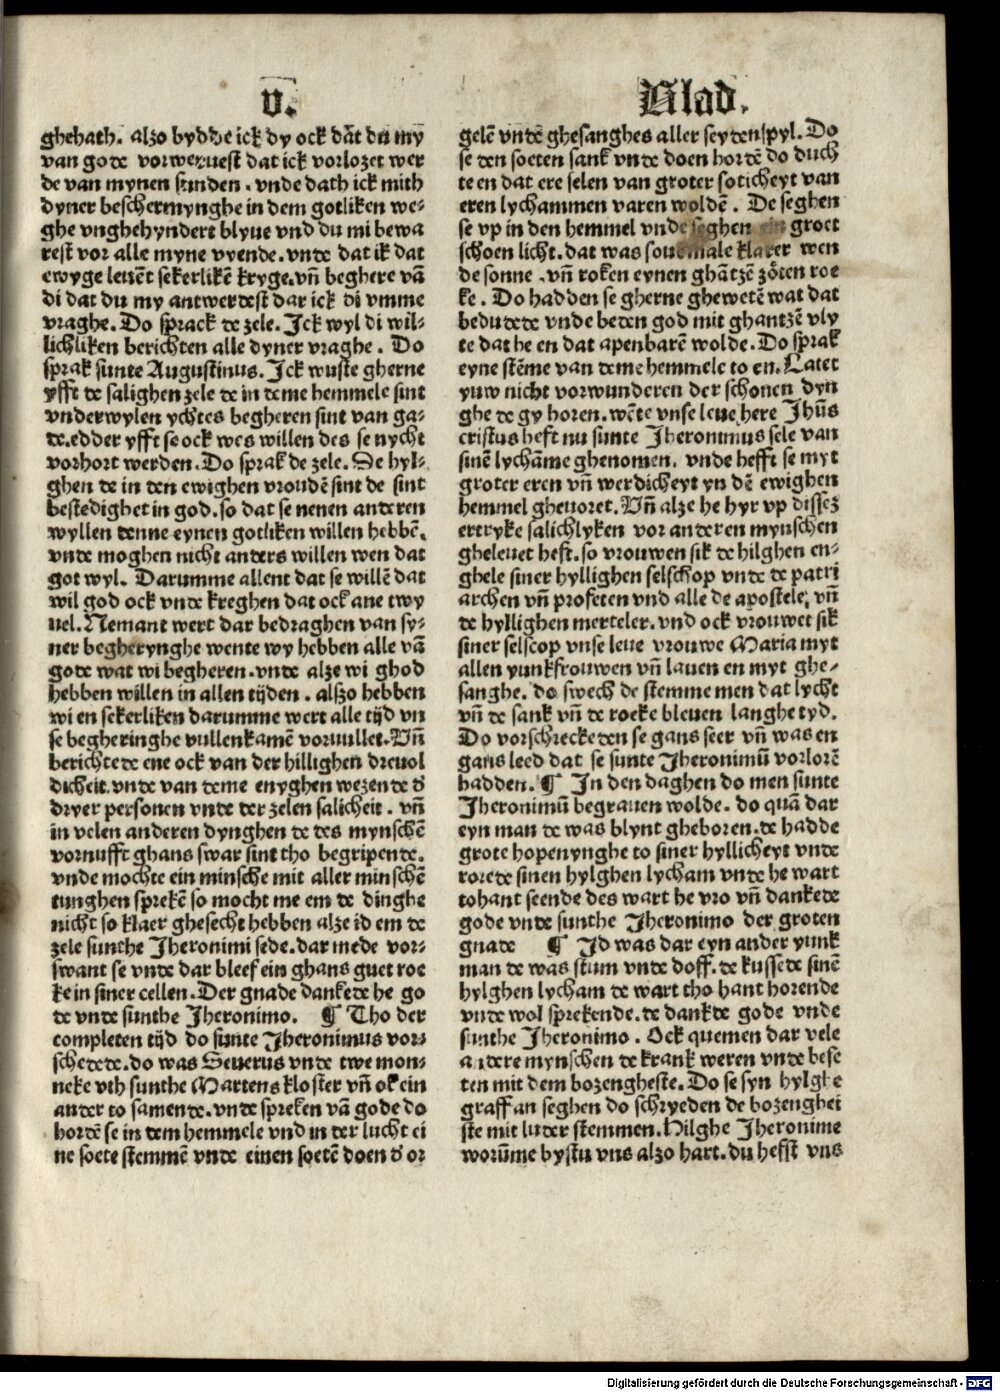 v.
ghehath. alzo bydde ick dy ock dat du my
van gode vorweruest dat ick vorlozet wer
de van mynen sunden. vnde dath ick mith
dyner beschermynghe in dem gotliken we-
ghe vnghehyndert blyue vnd du mi bewa
rest vor alle myne vyende. vnde dat ik dat
ewyge leuēt sekerlikē kryge. vñ beghere vā
di dat du my antwerdest dar ick di vmme
vraghe. Do sprack de zele. Ick wyl di wil-
lichliken berichten alle dyner vraghe. Do
sprak sunte Augustinus. Ick wuste gherne
yfft de salighen zele de in deme hemmele sint
vnderwylen ychtes begheren sint van ga-
de. edder yfft se ock wes willen des se nycht
vorhort werden. Do sprak de zele. De hyl-
ghen de in den ewighen vroudē sint de sint
bestedighet in god. so dat se nenen anderen
wyllen denne eynen gotliken willen hebbē.
vnde moghen nicht anders willen wen dat
got wyl. Darumme allent dat se willē dat
wil god ock vnde kreghen dat ock ane twy
uel. Nemant wert dar bedraghen van sy-
ner begherynghe wente wy hebben alle vā
gode wat wi begheren. vnde alze wi ghod
hebben willen in allen tijden. alszo hebben
wi en sekerliken darumme wert alle tijd vn
se begheringhe vullenkamē vorvullet. Vñ
berichtede ene ock van der hillighen dreuol
dicheit. vnde van deme enyghen wezende d̕
dryer personen vnde der zelen salicheit. vñ
in velen anderen dynghen de des mynschē
vornufft ghans swar sint tho begripende.
vnde mochte ein minsche mit aller minschē
tunghen sprekē so mocht me em de dinghe
nicht so klaer ghesecht hebben alze id em de
zele sunthe Jheronimi sede. dar mede vor-
swant se vnde dar bleef ein ghans guet roe
ke in siner cellen. Der gnade dankede he go
de vnde sunthe Jheronimo. ¶ Tho der
completen tijd do sunte Jheronimus vor-
schedede. do was Seuerus vnde twe mon-
neke vth sunthe Martens kloster vñ ok ein
ander to samende. vnde spreken vā gode do
hordē se in dem hemmele vnd in der lucht ei
ne soete stemmē vnde einen soetē doen d̕ or
Blad.
gelē vnde ghesanghes aller seydenspyl. Do
se den soeten sank vnde doen hordē do duch
te en dat ere selen van groter soticheyt van
eren lychammen varen woldē. De seghen
se vp in den hemmel vnde seghen ein groet
schoen licht. dat was souemale klarer wen
de sonne. vñ roken eynen ghātzē zoten roe
ke. Do hadden se gherne ghewetē wat dat
bedudede vnde beden god mit ghantzē vly
te dat he en dat apenbarē wolde. Do sprak
eyne stēme van deme hemmele to en. Latet
yuw nicht vorwunderen der schonen dyn
ghe de gy horen. wēte vnse leue here Jhūs
cristus heft nu sunte Jheronimus sele van
sinē lychāme ghenomen. vnde hefft se myt
groter eren vñ werdicheyt yn dē ewighen
hemmel gheuoret. Vñ alze he hyr vp dissez
ertryke salichlyken vor anderen mynschen
gheleuet heft. so vrouwen sik de hilghen en-
ghele siner hyllighen selschop vnde de patri
archen vñ profeten vnd alle de apostele, vñ
de hyllighen merteler. vnd ock vrouwet sik
siner selscop vnse leue vrouwe Maria myt
allen yunkfrouwen vñ lauen en myt ghe-
sanghe. do swech de stemme men dat lycht
vñ de sank vñ de roeke bleuen langhe tyd.
Do vorschreckeden se gans seer vñ was en
gans leed dat se sunte Jheronimū vorlorē
hadden. ¶ In den daghen do men sunte
Jheronimū begrauen wolde. do quā dar
eyn man de was blynt gheboren. de hadde
grote hopenynghe to siner hyllicheyt vnde
rorede sinen hylghen lycham vnde he wart
tohant seende des wart he vro vñ dankede
gode vnde sunthe Jheronimo der groten
gnade ¶ Id was dar eyn ander yunk
man de was stum vnde doff. de kussede sinē
hylghen lycham de wart tho hant horende
vnde wol sprekende. de dankde gode vnde
sunthe Jheronimo. Ock quemen dar vele
andere mynschen de krank weren vnde bese
ten mit dem bozengheste. Do se syn hylghe
graff an seghen do schryeden de bozenghei
ste mit luder stemmen. Hilghe Jheronime
worūme bystu vns alzo hart. du hefft vns
Digitalisierung gefördert durch die Deutsche Forschungsgemeinschaft - DFG